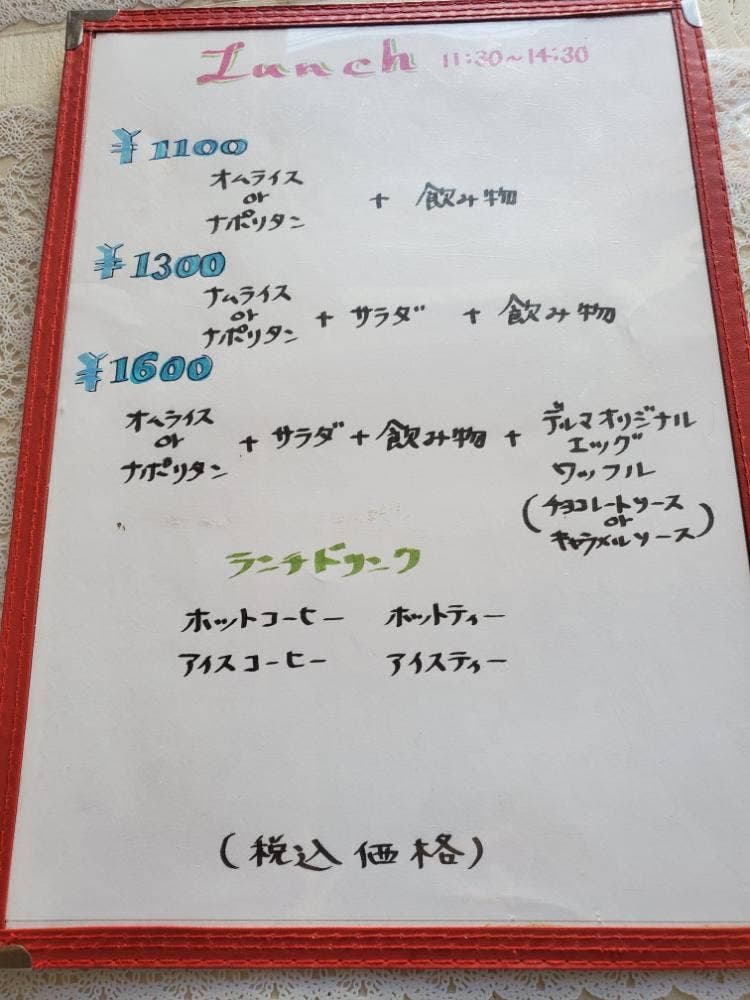 Lunch 11:30~14:30
¥1100
オムライス
or
ナポリタン
+ 飲み物
¥1300
ナムライス
or
ナポリタン
+ サラダ + 飲み物
¥1600
オムライス
or
ナポリタン
+ サラダ + 飲み物 +
デルマオリジナル
エッグ
ワッフル
(チョコレートソース
or
キャラメルソース)
ランチドリンク
ホットコーヒー ホットティー
アイスコーヒー アイスティー
(税込価格)